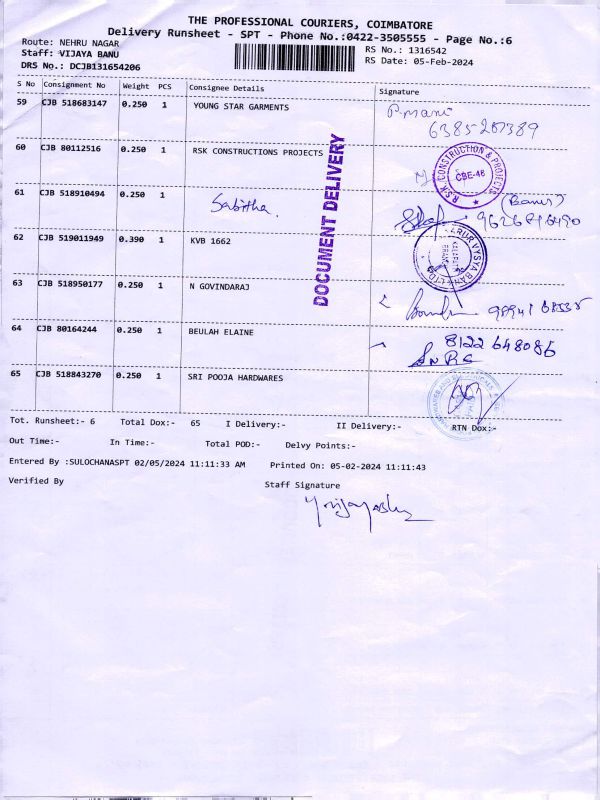 THE PROFESSIONAL COURIERS, COIMBATORE
Delivery Runsheet - SPT - Phone No.:0422-3505555 - Page No.:6
Route: NEHRU NAGAR
Staff: VIJAYA BANU
DRS No.: DCJB131654206
RS No.: 1316542
RS Date: 05-Feb-2024
S No Consignment No Weight PCS Consignee Details Signature
59 CJB 518683147 0.250 1 YOUNG STAR GARMENTS
60 CJB 80112516 0.250 1 RSK CONSTRUCTIONS PROJECTS
R.S.K. CONSTRUCTION & PROJECTS
CBE-46
61 CJB 518910494 0.250 1 Sabitha.
62 CJB 519011949 0.390 1 KVB 1662
63 CJB 518950177 0.250 1 N GOVINDARAJ
64 CJB 80164244 0.250 1 BEULAH ELAINE 8122 648086
65 CJB 518843270 0.250 1 SRI POOJA HARDWARES
DOCUMENT DELIVERY
Tot. Runsheet:- 6 Total Dox:- 65 I Delivery:- II Delivery:- RTN Dox:-
Out Time:- In Time:- Total POD:- Delvy Points:-
Entered By :SULOCHANASPT 02/05/2024 11:11:33 AM Printed On: 05-02-2024 11:11:43
Verified By Staff Signature